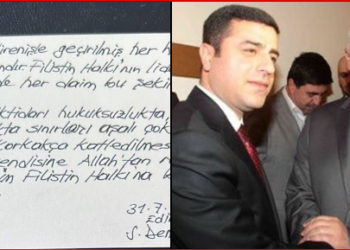 irenişle geçirilmiş her h
ndır. Filistin Halkı'nın lid
de her daim bu şekil
ktidarı hukuksuzlukta,
kta sınırları aşalı çok
korkakça katledilmes
endisine Allah'tan r
in Filistin Halkı'na b
31.7.
Edi
S. Dem